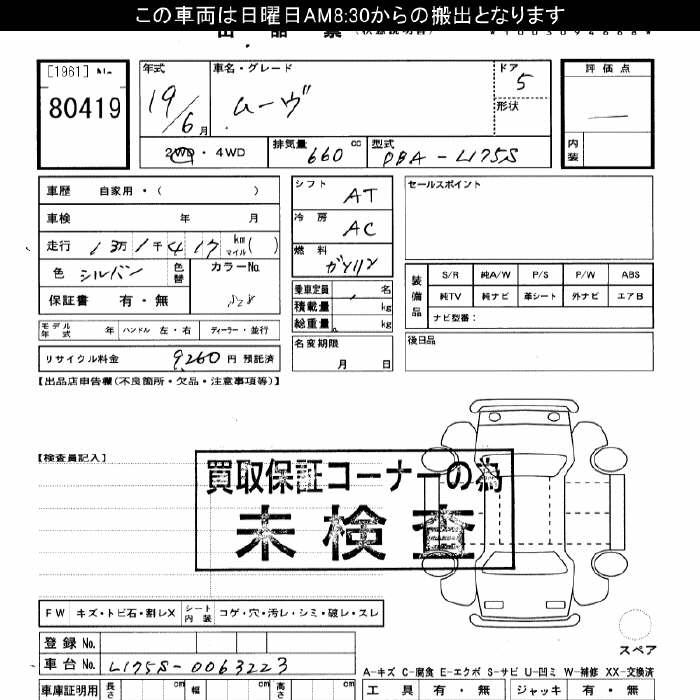 この車両は日曜日AM8:30からの搬出となります
出 品 票 (状態説明書) *10030946686*
[1961] No.
80419
年式 19/6月
車名・グレード ムーヴ
ドア 5
形状
評価点 —
内装
2WD・4WD
排気量 660 cc
型式 DBA-L175S
車歴 自家用・( )
シフト AT
セールスポイント
車検 年 月
冷房 AC
走行 13万1千417 km マイル( )
燃料 ガソリン
色 シルバー
色替
カラーNo.
保証書 有・無
乗車定員 名
積載量 kg
総重量 kg
装備品 S/R 純A/W P/S P/W ABS
純TV 純ナビ 革シート 外ナビ エアB
ナビ型番:
モデル年式 年 ハンドル 左・右 ディーラー・並行
名変期限 月 日
後日品
リサイクル料金 9,260 円 預託済
【出品店申告欄(不良箇所・欠品・注意事項等)】
【検査員記入】
買取保証コーナーの為
未検査
FW キズ・トビ石・割レX シート内装 コゲ・穴・汚レ・シミ・破レ・スレ
スペア
登録No.
車台No. L175S-0063223
A-キズ C-腐食 E-エクボ S-サビ U-凹ミ W-補修 XX-交換済
車庫証明用 長さ cm 幅 cm 高さ cm
工具 有・無 ジャッキ 有・無